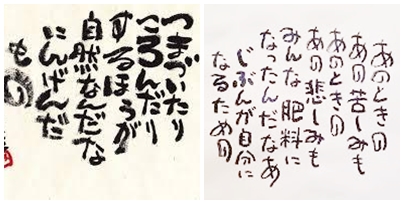 つまづいたり
ころんだり
するほうが
自然なんだな
にんげんだ
もの
あのときの
あの苦しみも
あのときの
あの悲しみも
みんな肥料に
なったんだなあ
じぶんが自分に
なるための